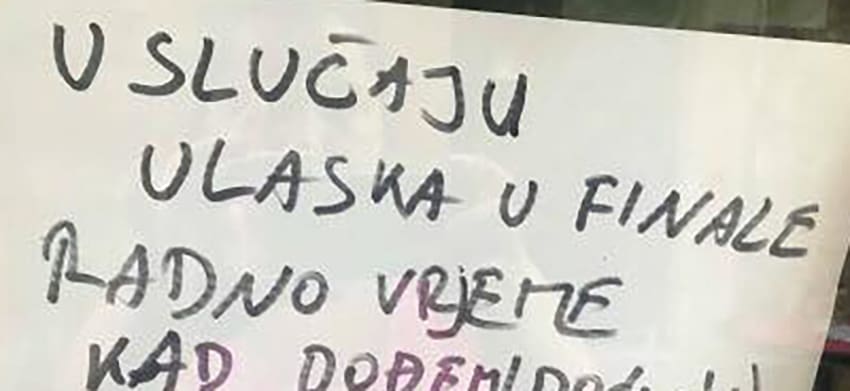 U SLUČAJU
ULASKA U FINALE
RADNO VRJEME
KAD DOĐEM